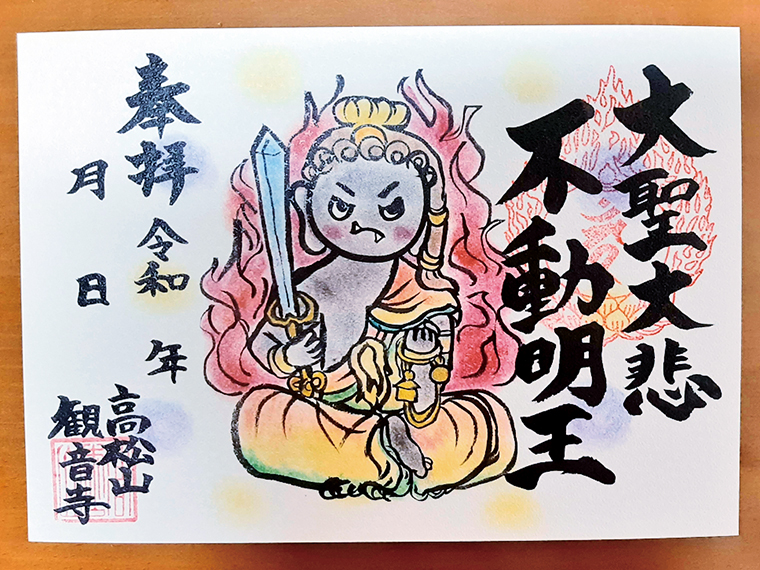 大聖大悲
不動明王
奉拝
令和 年
月 日
高松山
観音寺